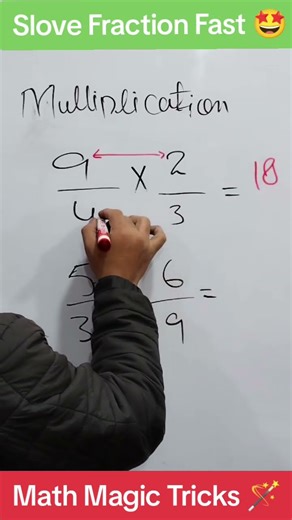 Slove Fraction Fast 🤩
Mulliplication
9/4 × 2/3 = 18
5/3 6/9 =
Math Magic Tricks 🪄